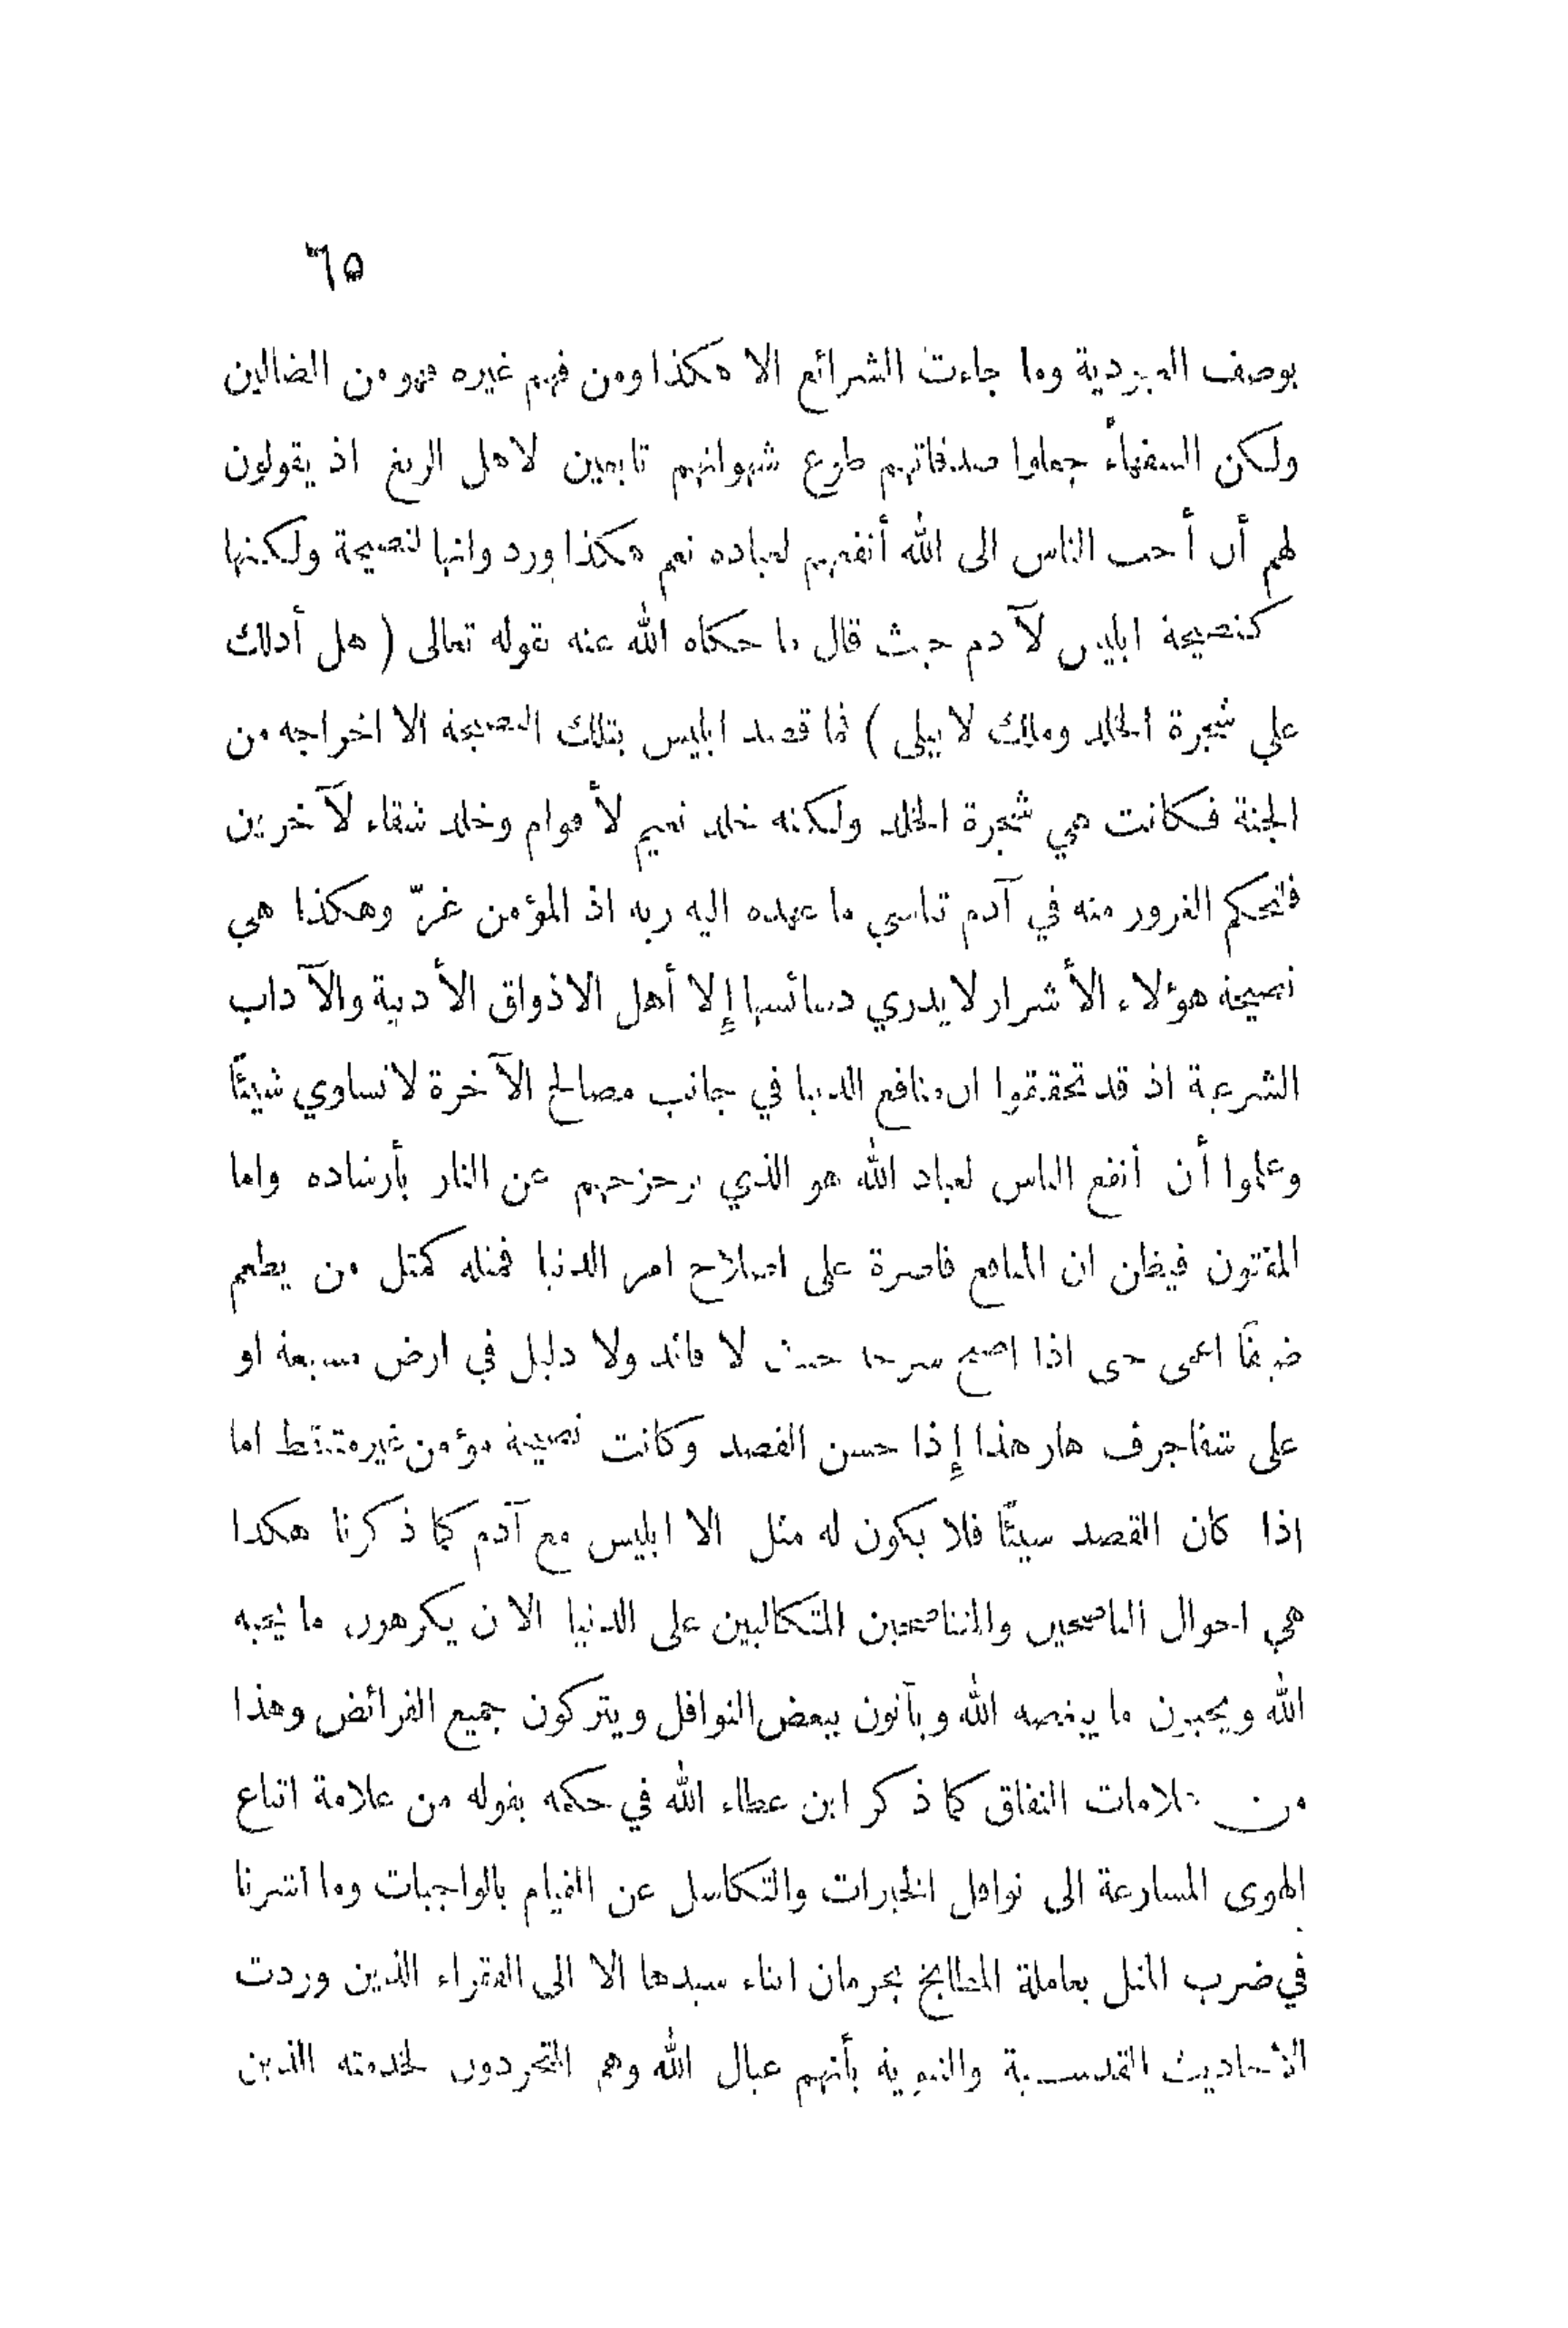 ٦٥
بوصف العبودية وما جاءت الشرائع الا هكذا ومن فهم غيره فهو من الضالين
ولكن السفهاء جعلوا صدقاتهم طوع شهواتهم تابعين لاهل الزيغ اذ يقولون
لهم أن أحب الناس الى الله أنفعهم لعباده نعم هكذا ورد وانها لنصيحة ولكنها
كنصيحة ابليس لآدم حيث قال ما حكاه الله عنه بقوله تعالى ( هل أدلك
على شجرة الخلد وملك لا يبلى ) فما قصد ابليس بتلك النصيحة الا اخراجه من
الجنة فكانت هي شجرة الخلد ولكنه خلد نعيم لأقوام وخلد شقاء لآخرين
فتحكم الغرور منه في آدم تناسي ما عهده اليه ربه اذ المؤمن غرّ وهكذا هي
نصيحة هؤلاء الأشرار لا يدري دسائسها إلا أهل الاذواق الأدبية والآداب
الشرعية اذ قد تحققوا ان منافع الدنيا في جانب مصالح الآخرة لا تساوي شيئًا
وعلموا أن أنفع الناس لعباد الله هو الذي يزحزحهم عن النار بأرشاده واما
المفتون فيظن ان المنافع قاصرة على اصلاح امر الدنيا فمثله كمثل من يطعم
ضيفًا اعمى حتى اذا اصبح سرحه حيث لا قائد ولا دليل في ارض مسبعة او
على شفا جرف هار هذا إذا حسن القصد وكانت نصيحة مؤمن غير متيقظ اما
اذا كان القصد سيئًا فلا يكون له مثل الا ابليس مع آدم كما ذكرنا هكذا
هي احوال الناصحين والمتناصحين المتكالبين على الدنيا الان يكرهون ما يحبه
الله ويحبون ما يبغضه الله ويأتون ببعض النوافل ويتركون جميع الفرائض وهذا
من علامات النفاق كما ذكر ابن عطاء الله في حكمه بقوله من علامة اتباع
الهوى المسارعة الى نوافل الخيرات والتكاسل عن القيام بالواجبات وما اشرنا
في ضرب المثل بعاملة المطابخ بحرمان ابناء سيدها الا الى الفقراء الذين وردت
الأحاديث القدسية والنبوية بأنهم عيال الله وهم المتجردون لخدمته الذين